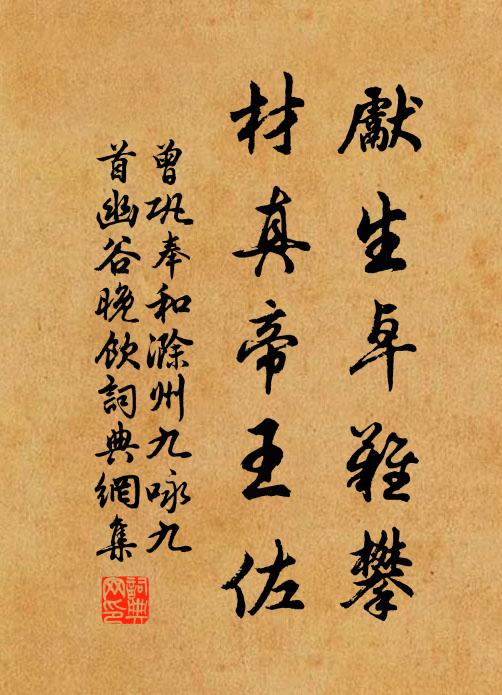 獻生卓難攀
材真帝王佐
曾巩奉和滁州九咏九
首幽谷晚飲詞典網集
詞典网印